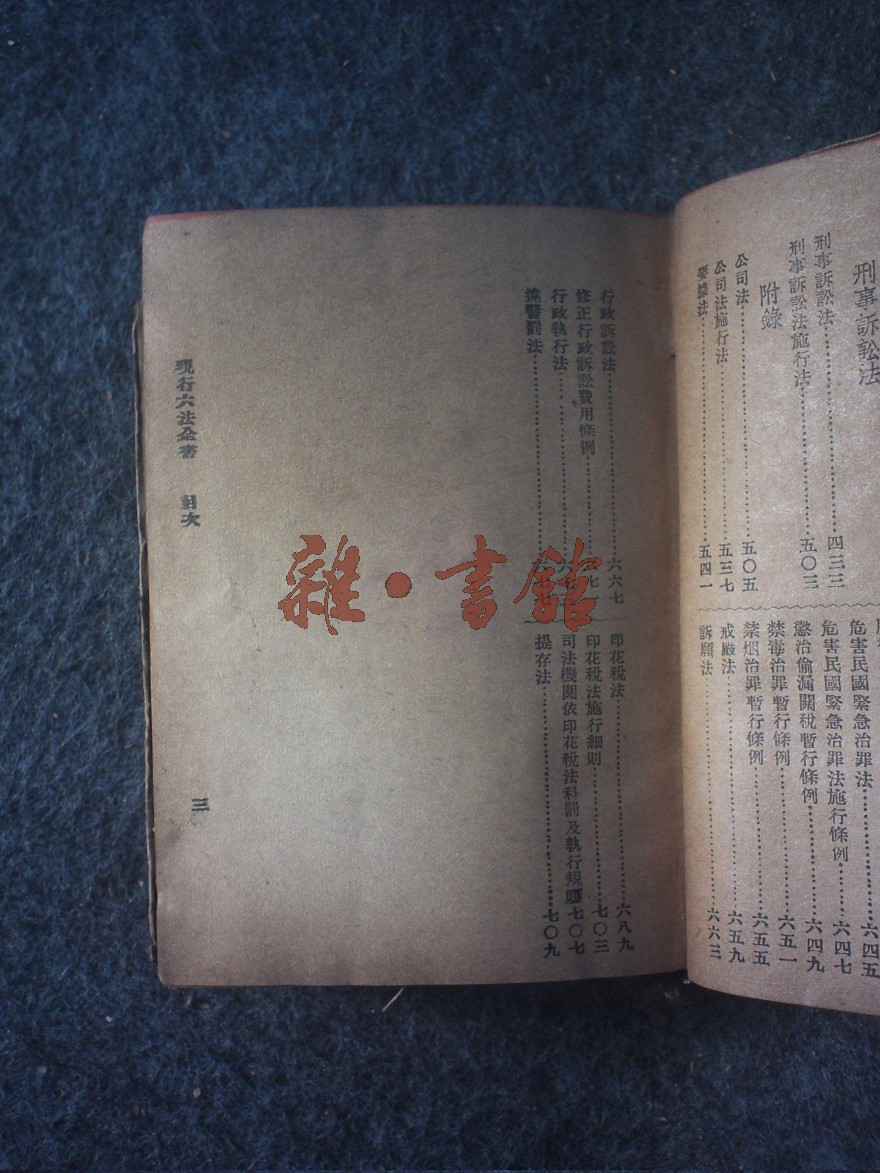 刑事訴訟法
刑事訴訟法……四三三
刑事訴訟法施行法……五〇三
附錄
公司法……五〇五
公司法施行法……五三七
票據法……五四一
危害民國緊急治罪法……六四五
危害民國緊急治罪法施行條例……六四七
懲治偷漏關稅暫行條例……六四九
禁毒治罪暫行條例……六五一
禁烟治罪暫行條例……六五五
戒嚴法……六五九
訴願法……六六三
行政訴訟法……六六七
修正行政訴訟費用條例
行政執行法
違警罰法
印花稅法……六八九
印花稅法施行細則……七〇三
司法機關依印花稅法科罰及執行規則……七〇七
提存法……七〇九
現行六法全書 目次
三
雜·書館